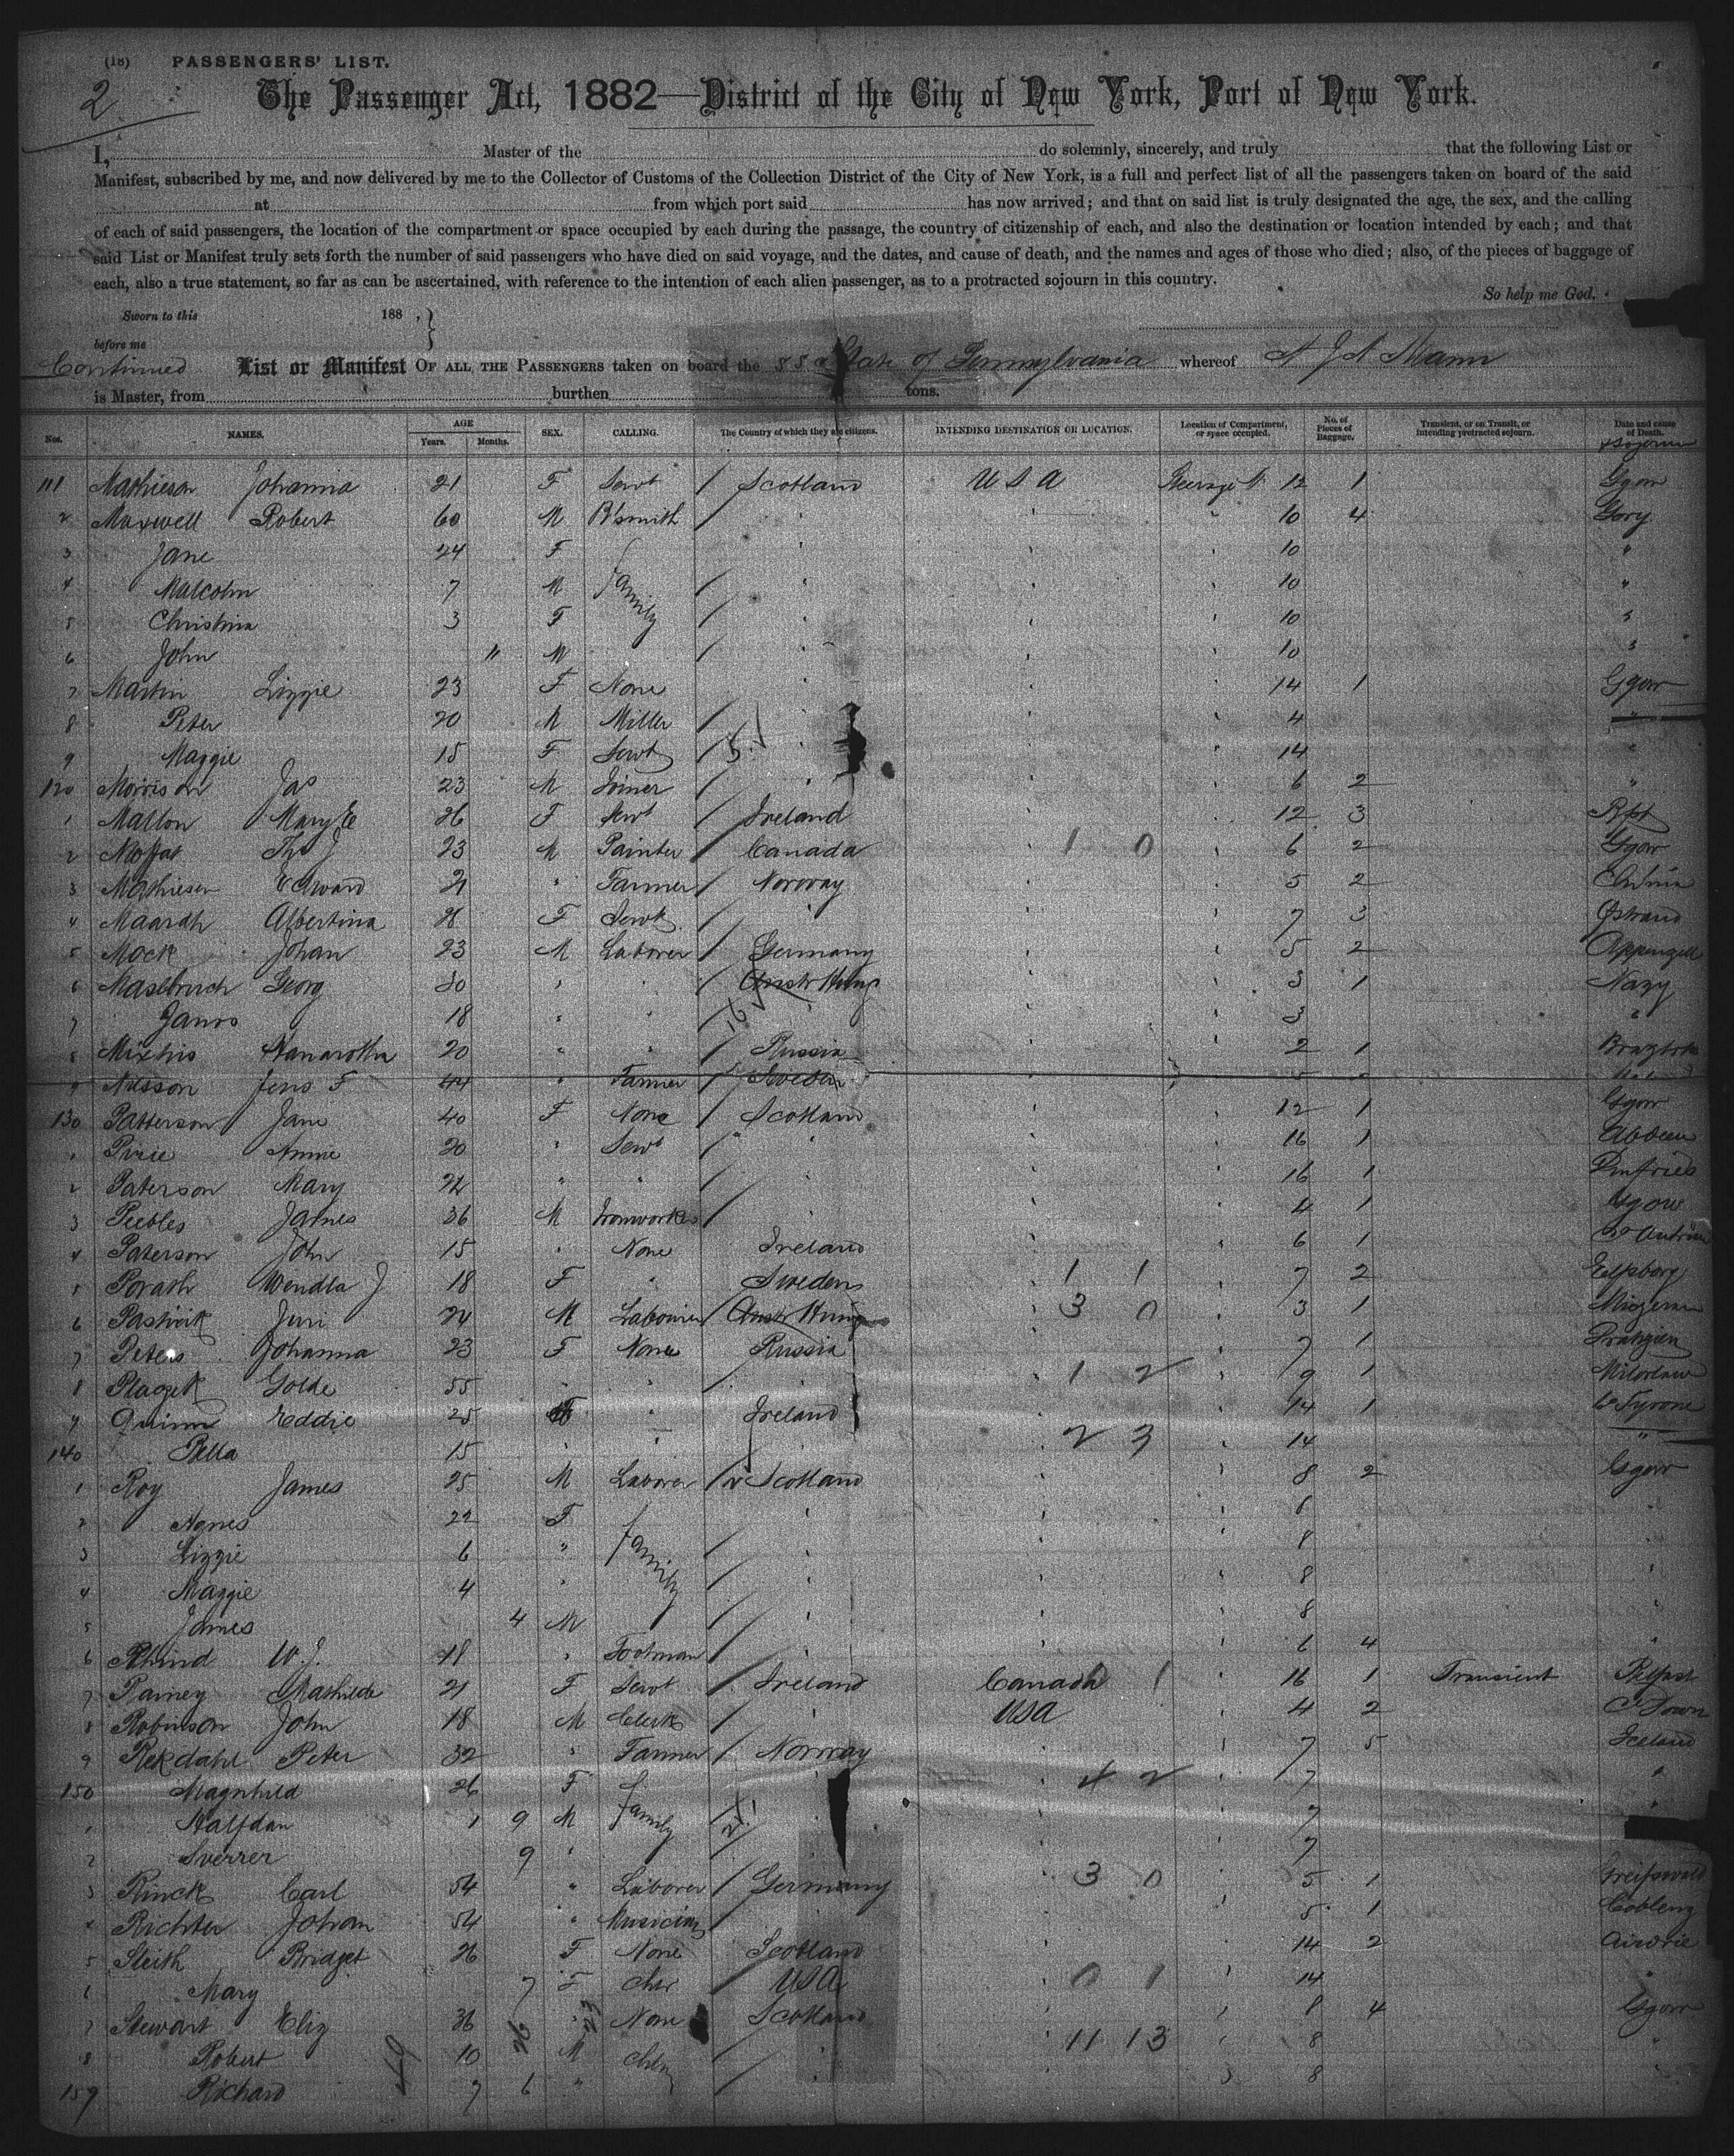 (18) PASSENGERS' LIST.
2
The Passenger Act, 1882—District of the City of New York, Port of New York.
I, Master of the do solemnly, sincerely, and truly that the following List or
Manifest, subscribed by me, and now delivered by me to the Collector of Customs of the Collection District of the City of New York, is a full and perfect list of all the passengers taken on board of the said
at from which port said has now arrived; and that on said list is truly designated the age, the sex, and the calling
of each of said passengers, the location of the compartment or space occupied by each during the passage, the country of citizenship of each, and also the destination or location intended by each; and that
said List or Manifest truly sets forth the number of said passengers who have died on said voyage, and the dates, and cause of death, and the names and ages of those who died; also, of the pieces of baggage of
each, also a true statement, so far as can be ascertained, with reference to the intention of each alien passenger, as to a protracted sojourn in this country.
So help me God.
Sworn to this 188 ,
before me
Continued List or Manifest OF ALL THE PASSENGERS taken on board the SS State of Pennsylvania whereof A J A Mann
is Master, from burthen tons.
Nos. NAMES. AGE Years. Months. SEX. CALLING. The Country of which they are citizens. INTENDING DESTINATION OR LOCATION. Location of Compartment, or space occupied. No. of Pieces of Baggage. Transient, or on Transit, or intending protracted sojourn. Date and cause of Death.
111 Mathieson Johanna 21 F Servt / Scotland U S A Steerage 12 1 Ggow
2 Maxwell Robert 60 M B'smith / " 10 4
3 Jane 24 F Family 10 "
4 Malcolm 7 M / 10 "
5 Christina 3 F / 10 "
6 John 11 M / 10 "
7 Martin Lizzie 23 F None 14 1 Ggow
8 Peter 20 M Miller / 4 "
9 Maggie 15 F Servt / 14 "
120 Morrison Jas 23 M Joiner / 6 2 "
1 Mallon Mary E 26 F Servt / Ireland 12 3
2 Moffat Thos J 23 M Painter / Canada 1 0 6 2 Ggow
3 Mathiesen Edward 21 " Farmer / Norway 5 2
4 Maardh Albertina 28 F Servt / " 7 3
5 Mock Johan 23 M Laborer / Germany 5 2 Appenzell
6 Maselbruch Georg 30 " " / Austr Hung 3 1 Nazy
7 Janos 18 " " / " 3 "
8 Mixhis 20 " " / Russia 2 1
9 Nilsson Jens F 44 " Farmer / Sweden
130 Patterson Jane 40 F None / Scotland 12 1 Ggow
1 Pirie Annie 20 " Servt / " 16 1 Abdeen
2 Paterson Mary 22 " " / " 16 1 Dumfries
3 Peebles James 36 M Ironworker / " 4 1 Ggow
4 Paterson John 15 " None Ireland 6 1 Co Antrim
5 Porath Wendla J 18 F " Sweden 1 1 7 2 Elfsborg
6 Pastirik Juri 24 M Labourer / Austr Hung 3 0 3 1
7 Peters Johanna 23 F None Russia 7 1
8 Plagzek Golde 55 " " " 1 2 9 1
9 Quinn Eddie 25 F " Ireland 14 1 Co Tyrone
140 Bella 15 " " " 2 3 14 "
1 Roy James 25 M Laborer / Scotland 8 2 Ggow
2 Agnes 22 F Family 8 "
3 Lizzie 6 " / 8 "
4 Maggie 4 " / 8 "
5 James 4 M / 8 "
6 Rhind W. J. 18 " Footman / 6 4 "
7 Rainey Mathilde 21 F Servt / Ireland Canada 1 16 1 Transient Belfast
8 Robinson John 18 M Clerk / " USA 4 2 Co Down
9 Rekdahl Peter 32 " Farmer / Norway 7 5 Iceland
150 Magnhild 26 F Family 4 2 7 "
1 Halfdan 1 9 M / 7 "
2 Sverrer 9 " 7
3 Rinck Carl 54 " Laborer / Germany 3 0 5 1 Greifswald
4 Richter Johan 54 " Musician / " 5 1 Coblenz
5 Sleith Bridget 26 F None Scotland 14 2 Airdrie
6 Mary 7 F Chld / USA 0 1 14 "
7 Stewart Eliz 36 " None Scotland 8 4 Ggow
8 Robert 10 M Chldn / 11 13 8 "
159 Richard 7 6 " / 8 "